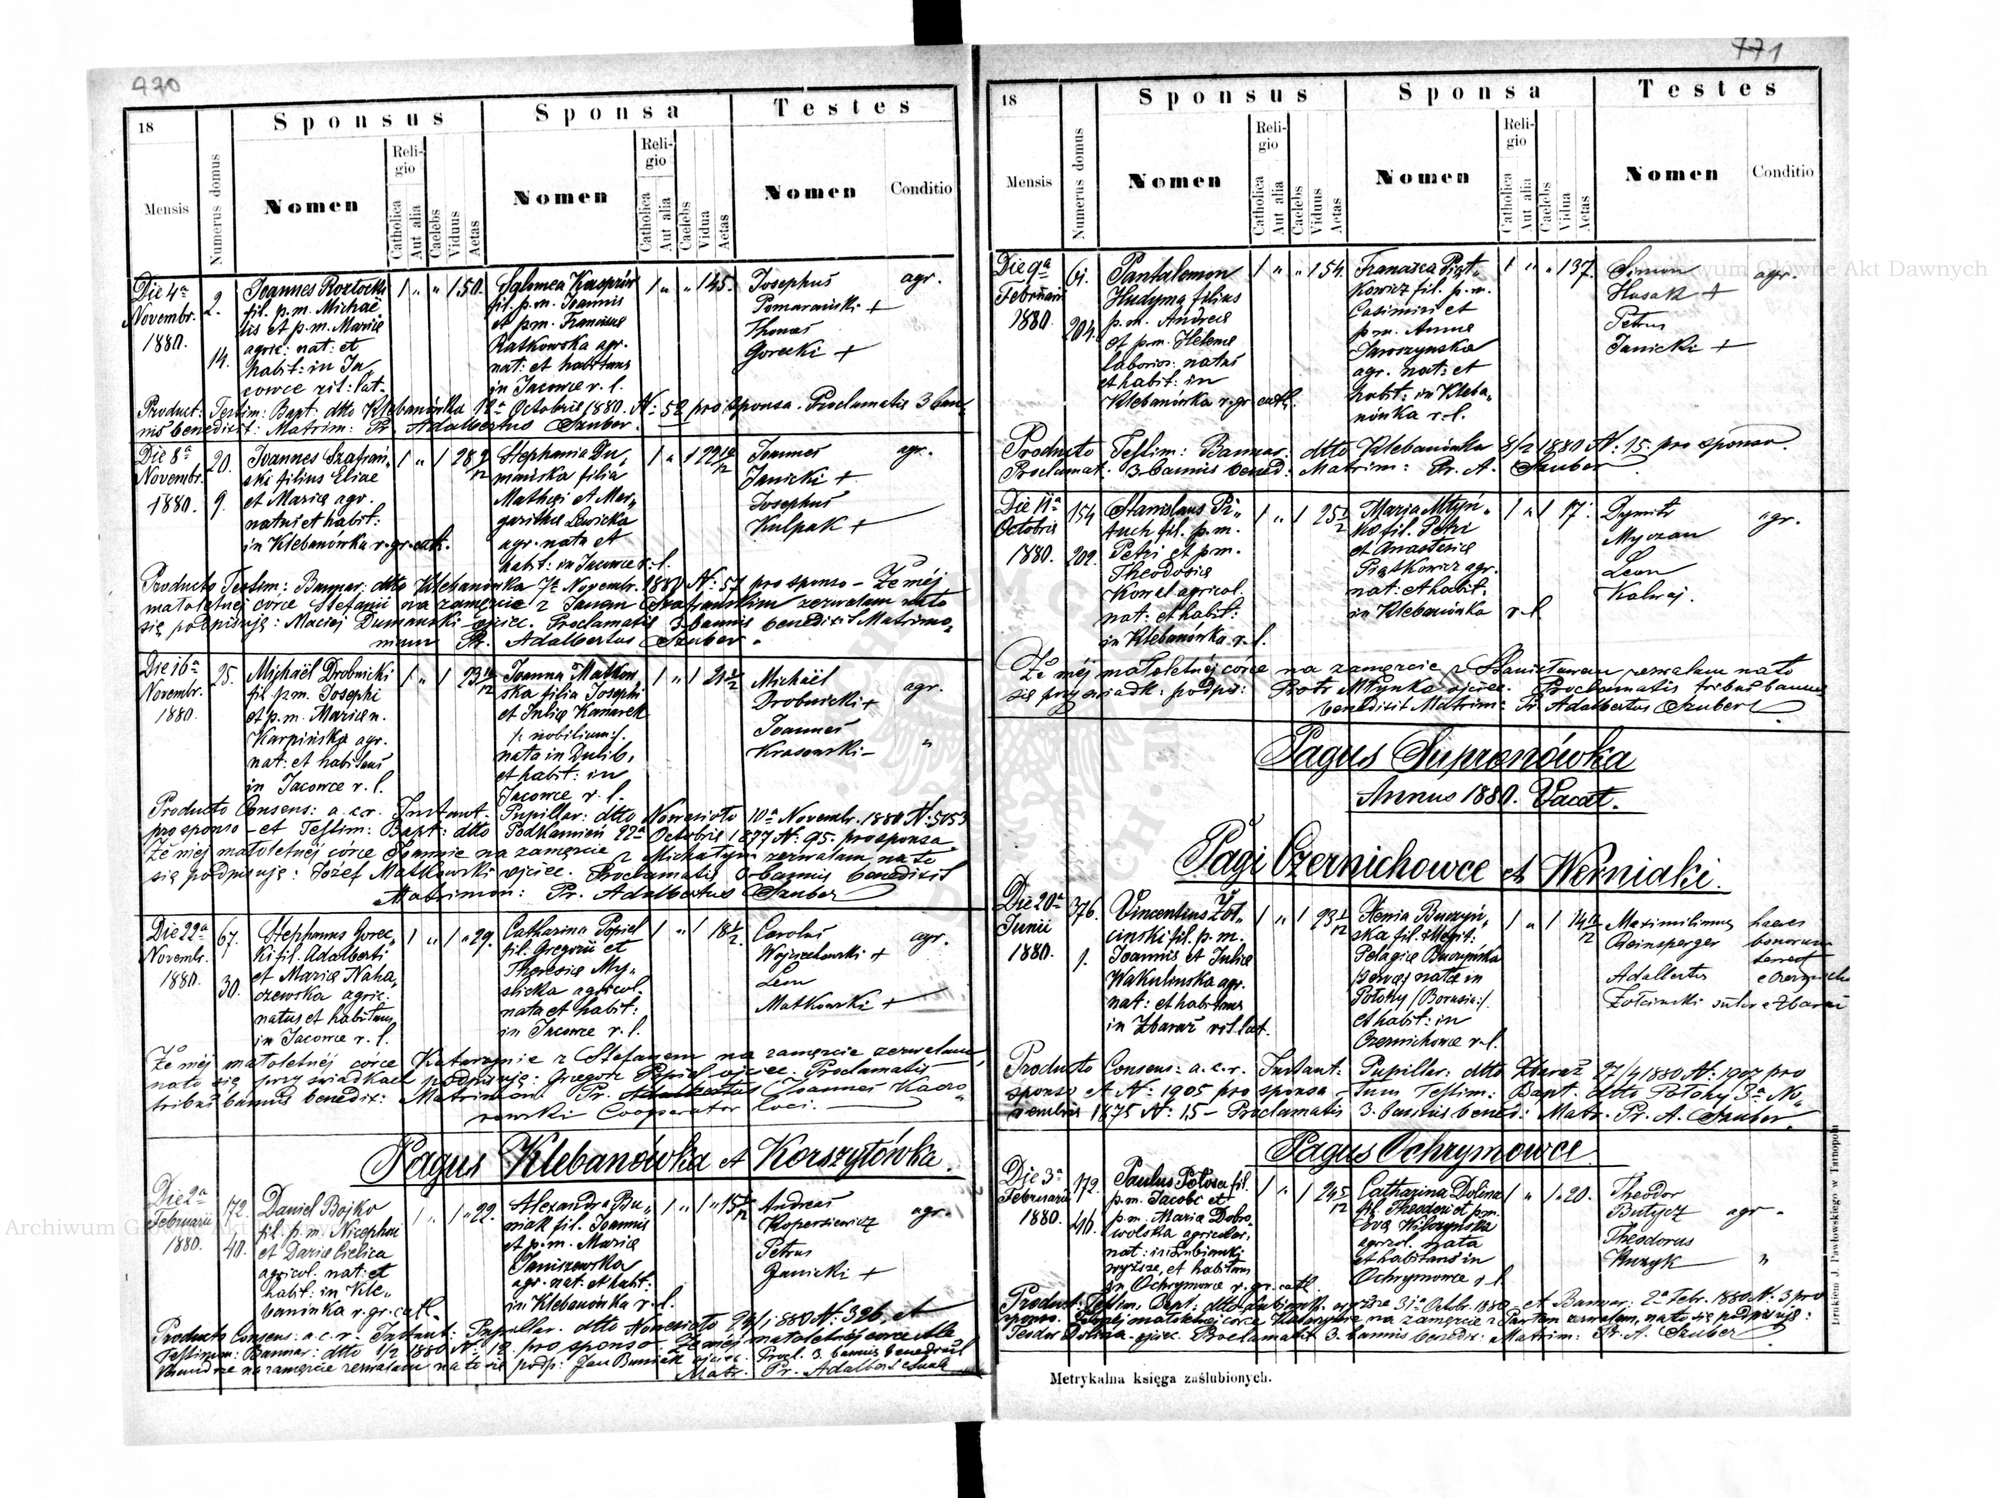 770
18
Mensis
Numerus domus
Sponsus
Nomen
Religio
Catholica
Aut alia
Caelebs
Viduus
Aetas
Sponsa
Nomen
Religio
Catholica
Aut alia
Caelebs
Vidua
Aetas
Testes
Nomen
Conditio
Die 4a
Novembr.
1880.
2.
14.
Joannes
fil. p. m. Michaë
lis et p. m. Mariæ
agric: nat: et
habit: in Ja
cowce rit: lat.
1 „ „ 1 50.
Salomea
fil. p. m. Joannis
et p.m. Franciscæ
Ratkowska agr.
nat: et habitans
in Jacowce r. l.
1 „ „ 1 45.
Josephus
Pomarański +
Thomas
Gorecki +
agr.
Product: Testim: Bapt: dtto Klebanówka 12a Octobris 1880. N: 52 pro sponsa. Proclamatis 3 ban
nis benedixit: Matrim: Pr. Adalbertus Szuber.
Die 8a
Novembr.
1880.
20.
9.
Joannes Szafrań
ski filius Eliae
et Mariæ agr.
natus et habit:
in Klebanówka r. gr. cath.
1 „ 1
Stephania Du„
mańska filia
Mathæi et Mar„
garithæ Lewicka
agr. nata et
habit: in Jacowce r. l.
1 „ 1
Joannes
Janicki +
Josephus
Kulpak +
agr.
Producto Testim: Bannar: dtto Klebanówka 7a Novembr. 1880 N: 57 pro sponso – Że méj
małoletnéj córce Stefanii na zamęzcie z Janem Szafrańskim zezwalam na to
się podpisuję: Maciej Dumański ojciec. Proclamatis 3 bannis benedixit Matrimo„
nium Pr. Adalbertus Szuber.
Die 16a
Novembr.
1880.
25.
Michaël Drobnicki
fil. p.m. Josephi
et p. m. Mariæ n.
Karpińska agr.
nat: et habitans
in Jacowce r. l.
1 „ 1
Joanna Matkow
ska filia Josephi
et Juliæ Kanarek
/: nobilium:/.
nata in Dulib,
et habit: in
Jacowce r. l.
1 „ 1
Michaël
Drobnicki +
Joannes
Krasowski –
agr.
„
Producto Consens: a. c. r. Instant. Pupillar: dtto Nowesioło 10a Novembr. 1880 N: 5053
pro sponso – et Testim: Bapt: dtto Podkamień 22a Octobris 1877 N: 95. pro sponsa.
Że méj małoletnéj córce Joannie na zamęzcie z Michałem zezwalam, na to
się podpisuję: Józef Matkowski ojciec. Proclamatis 3 bannis benedixit
Matrimon: Pr. Adalbertus Szuber
Die 22a
Novembr.
1880.
67.
30.
Stephanus Gorec„
ki fil. Adalberti
et Mariæ Naha„
czewska agric.
natus et habitans
in Jacowce r. l.
1 „ 1 „ 29.
Catharina Popiel
fil. Gregorii et
Theresiæ My„
slicka agricol.
nata et habit:
in Jacowce r. l.
1 „ 1
Carolus
Wojciechowski +
Leon
Matkowski +
agr.
Że méj małoletnéj córce Katarzynie z Stefanem na zamęzcie zezwalam,
na to się przy swiadkach podpisuję: Grzegorz Popiel ojciec. Proclamatis
tribus bannis benedix: Matrimon: Pr. Adalbertus Joannes Kaczo„
rowski Cooperator loci.
Pagus Klebanówka et Korszyłówka.
Die 2a
Februarii
1880.
172.
40.
Daniel Bojko
fil. p. m. Nicephori
et Dariæ Bielica
agricol. nat: et
habit: in Kle„
banówka r. gr. cath.
1 „ 1 „ 22.
Alexandra Bu„
niak fil. Joannis
et p. m. Mariæ
Janiszewska
agr. nat: et habit:
in Klebanówka r. l.
1 „ 1 „
Andreas
Kopersiewicz
Petrus
Janicki +
agr.
Producto Consens: a. c. r. Instant: Pupillar. dtto Nowesioło 24/1 880 N: 326, et
Testium: Bannar: dtto 1/2 1880 N: 12. pro sponso Że méj małoletnéj córce Ale
xandrze na zamęzcie zezwalam na to się podp: Jan Buniak ojciec. Procl. 3. bannis benedixit
Matr. Pr. Adalbert Szub
771
18
Mensis
Numerus domus
Sponsus
Nomen
Religio
Catholica
Aut alia
Caelebs
Viduus
Aetas
Sponsa
Nomen
Religio
Catholica
Aut alia
Caelebs
Vidua
Aetas
Testes
Nomen
Conditio
Die 9a
Februarii
1880.
61.
204.
Pantalemon
Hudyma filius
p. m. Andreæ
et p.m. Helenæ
laborios: natus
et habit: in
Klebanówka r. gr. cath.
1 „ „ 1 54.
Francisca Piąt„
kowicz fil. p. m.
Casimiri et
p. m. Annæ
Jaroszynska
agr. nat: et
habit: in Kleba„
nówka r. l.
1 „ „ 1 37.
Simon
Husak +
Petrus
Janicki +
agr.
Producto Testim: Bannar: dtto Klebanówka 8/2 1880 N: 15. pro sponso.
Proclamat. 3 bannis bened: Matrim: Pr. A. Szuber
Die 11a
Octobris
1880.
154
202.
Stanislaus
fil. p. m.
Petri et p.m.
Theodosiæ
Kowal agricol.
nat: et habit:
in Klebanówka r. l.
1 „ 1
Maria Młyń„
ka fil. Petri
et Anastasiæ
Piątkowicz agr.
nat: et habit.
in Klebanówka r. l.
1 „ 1 17.
Dymitr
Myczan
Leon
agr.
Że méj małoletnéj córce na zamęzcie z Stanisławem zezwalam na to
się przy swiadk: podpis: Piotr Młynka ojciec. Proclamatis tribus bannis
benedixit Matrim: Pr. Adalbertus Szuber.
Pagus Supronówka
Annus 1880. Vacat.
Pagi Czernichowce et Werniaki.
Die 20a
Junii
1880.
376.
1.
Vincentius Żoł„
cinski fil. p. m.
Joannis et Juliæ
Wakulinska agr.
nat: et habitans
in Zbaraż rit. lat.
1 „ 1
Xenia Buczyń„
ska fil. illegit:
Pelagiæ Buczyńska
nata in
Połohy /:Borusia:/.
et habit: in
Czernichowce r. l.
1 „ 1
Maximilianus
Reinsperger
Adalbertus
Żołcinski
haeres
bonorum
terrest
e Czernicho
sutor e Zbaraż
Producto Consens: a. c. r. Instant: Pupillar: dtto Zbaraż 27/4 1880 N: 1907 pro
sponso et N: 1905 pro sponsa – Tum Testim: Bapt: dtto Połohy 3a No„
vembris 1875 N: 15 – Proclamatis 3. bannis bened: Matr: Pr. A. Szuber.
Pagus Ochrymowce
Die 3a
Februarii
1880.
172.
46.
Paulus Połosa fil.
p.m. Jacobi et
p.m. Maria Dobro„
wolska agricolar.
nat: in Łubianki
wyższe, et habitans
in Ochrymowce r. gr. cath.
1 „ 1
Catharina Dolina
fil. Theodori et p.m.
Eva Wilczynska
agricol. nata
et habitans in
Ochrymowce r. l.
1 „ 1 „ 20.
Theodor
Butycz
Theodorus
agr.
„
Product: Testim: Bapt: dtto Łubianki wyższe 31a Octbr. 1880 et Bannar: 2a Febr. 1880 N: 3 pro
sponso. Że méj małoletnéj córce Katarzynie na zamęzcie z Pawłem zezwalam, na to się podpisuję:
Teodor Dolina ojciec. Proclamatis 3. bannis benedix: Matrim: Pr. A. Szuber
Metrykalna księga zaślubionych.
Drukiem J. Pawłowskiego w Tarnopolu
Archiwum Główne Akt Dawnych
Archiwum Główne Akt Dawnych